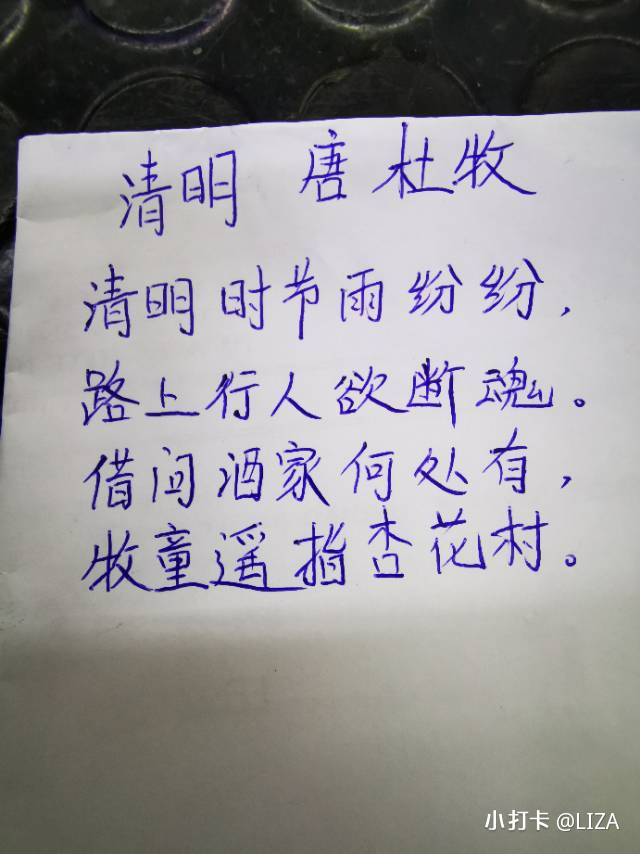 清明 唐 杜牧
清明时节雨纷纷，
路上行人欲断魂。
借问酒家何处有，
牧童遥指杏花村。
小打卡 @LIZA